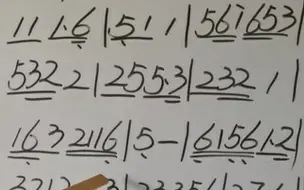 11 1.6 | 5 1 1 | 561 653 |
532 2 | 25 5.3 | 232 1 |
163 2116 | 5 - | 6156 1.2 |